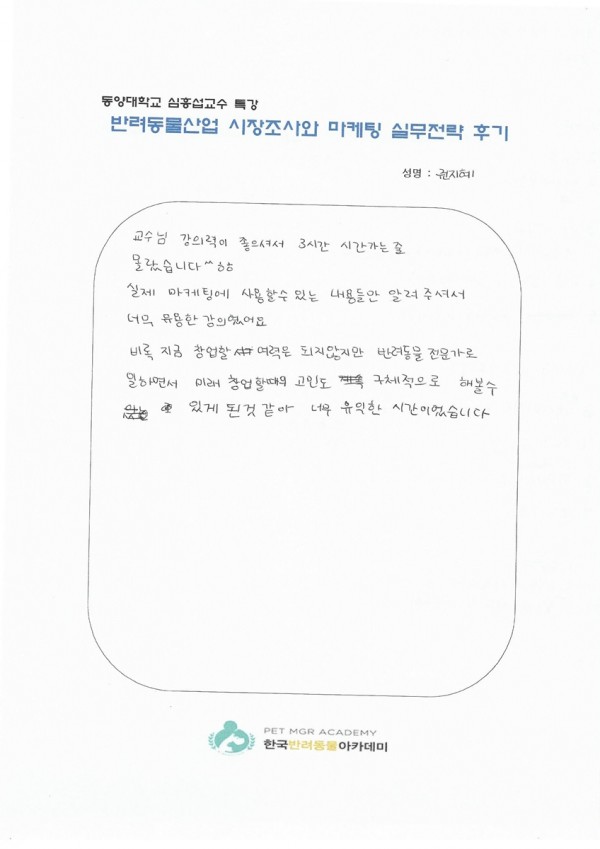 동양대학교 심홍섭교수 특강
반려동물산업 시장조사와 마케팅 실무전략 후기
성명 : 권지혜
교수님 강의력이 좋으셔서 3시간 시간가는 줄
몰랐습니다^^
실제 마케팅에 사용할수 있는 내용들만 알려 주셔서
너무 유용한 강의였어요
비록 지금 창업할 여력은 되지않지만 반려동물 전문가로
일하면서 미래 창업할때의 고민도 구체적으로 해볼수
있게 된것 같아 너무 유익한 시간이었습니다
PET MGR ACADEMY
한국반려동물아카데미